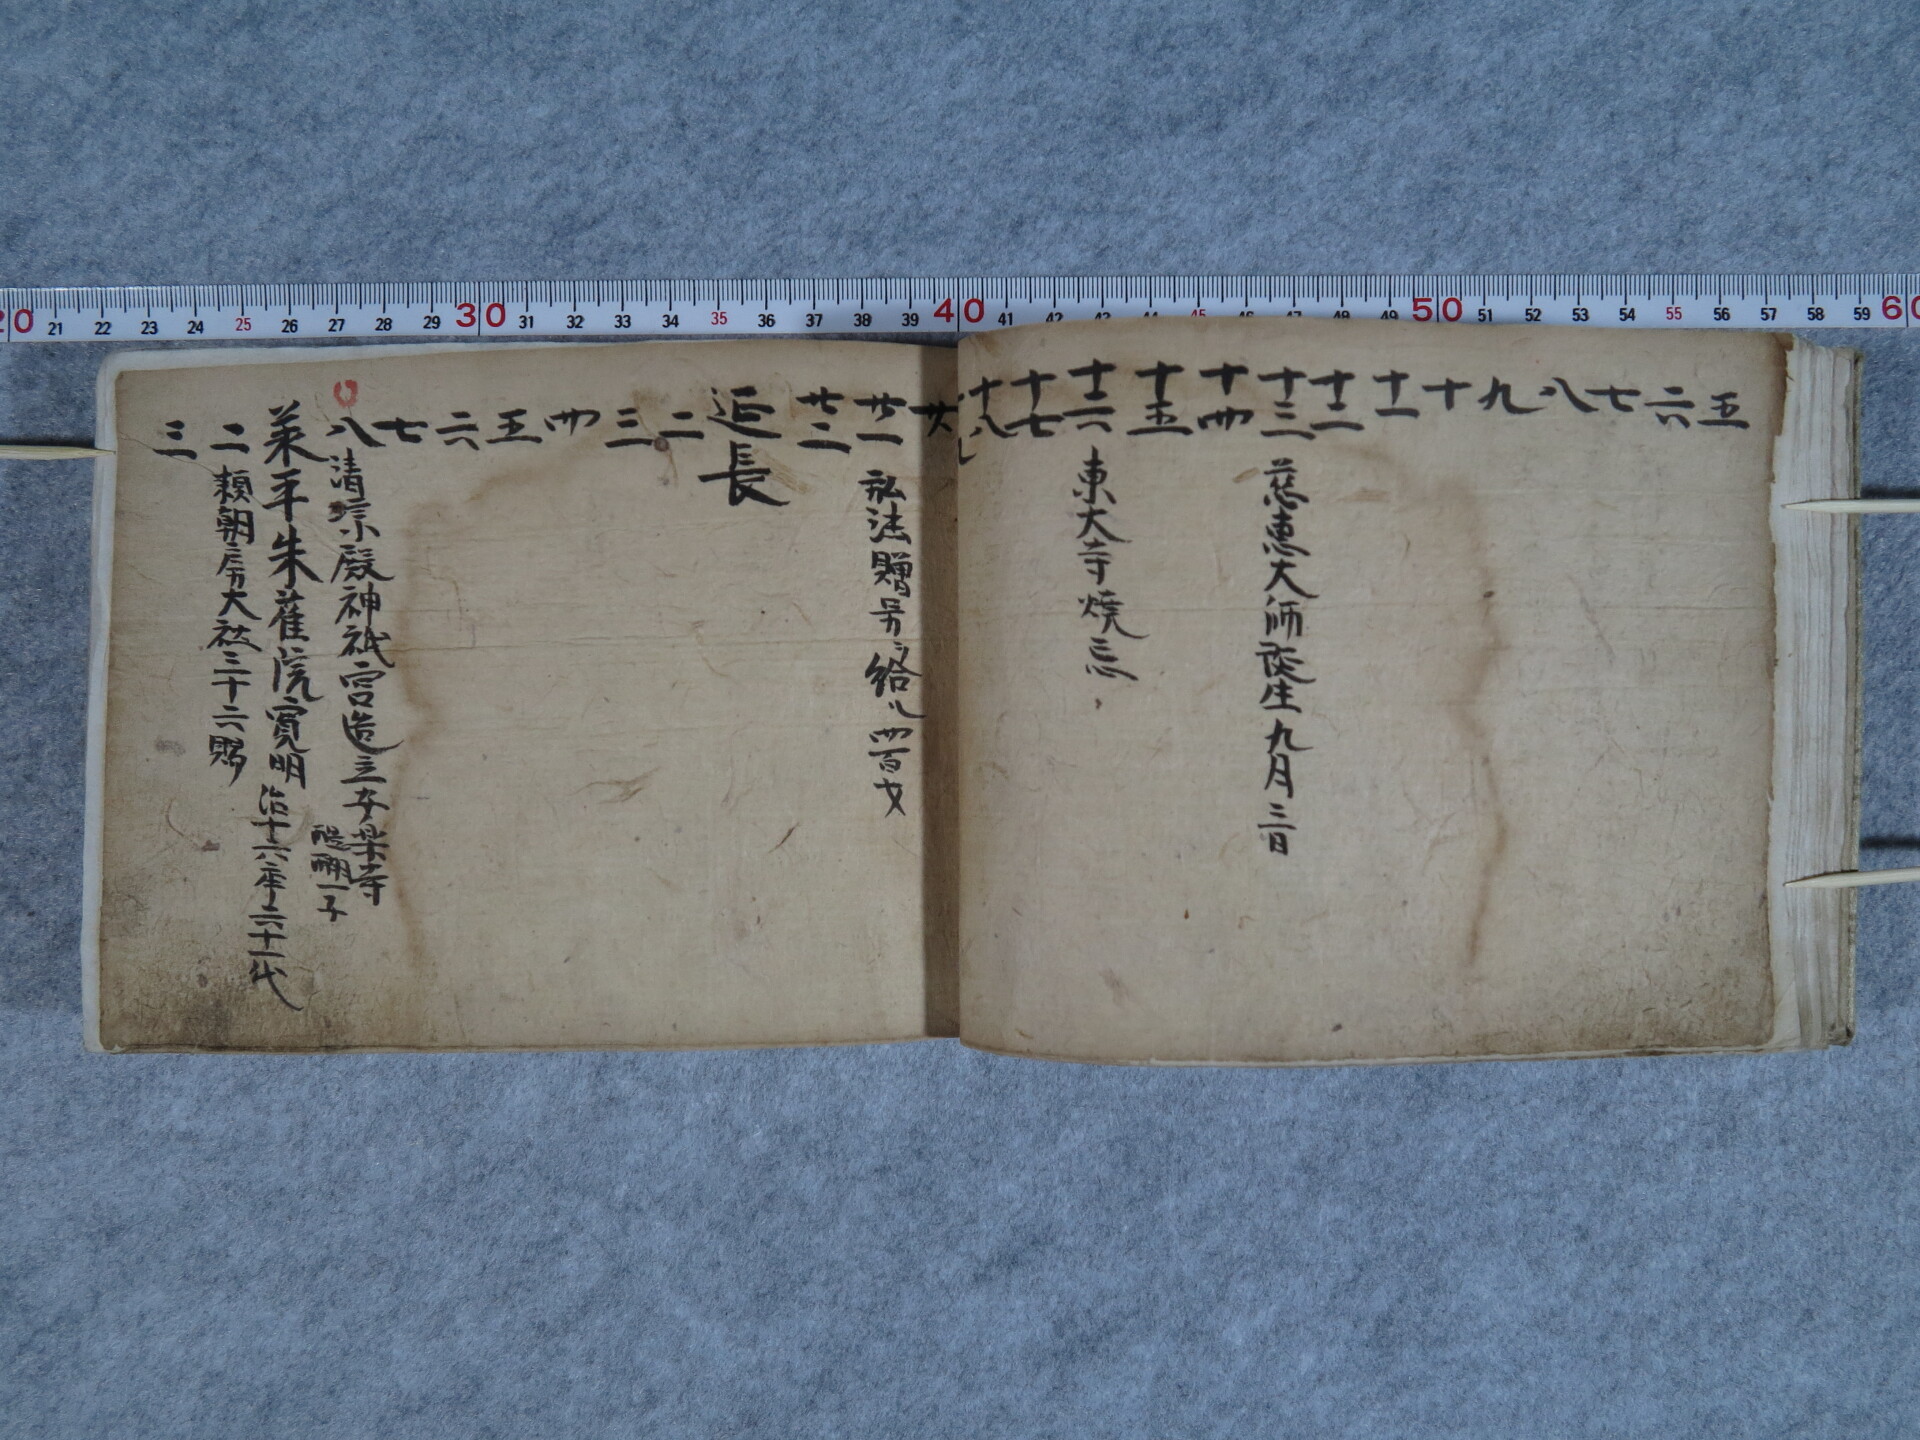 五
六
七
八
九
十
十一
十二
十三 慈恵大師誕生九月三日
十四
十五
十六 東大寺焼忘
十七
十八
廿
廿一 弘法贈号ヲ給ル 四百
廿二
延長
二
三
四
五
六
七
八 清凉殿神祇宮造立安楽寺
醍醐一子
承平朱雀院寛明 治十六年六十一代
二 頼朝房大社三十六賜
三
20 21 22 23 24 25 26 27 28 29 30 31 32 33 34 35 36 37 38 39 40 41 42 43 44 45 46 47 48 49 50 51 52 53 54 55 56 57 58 59 60